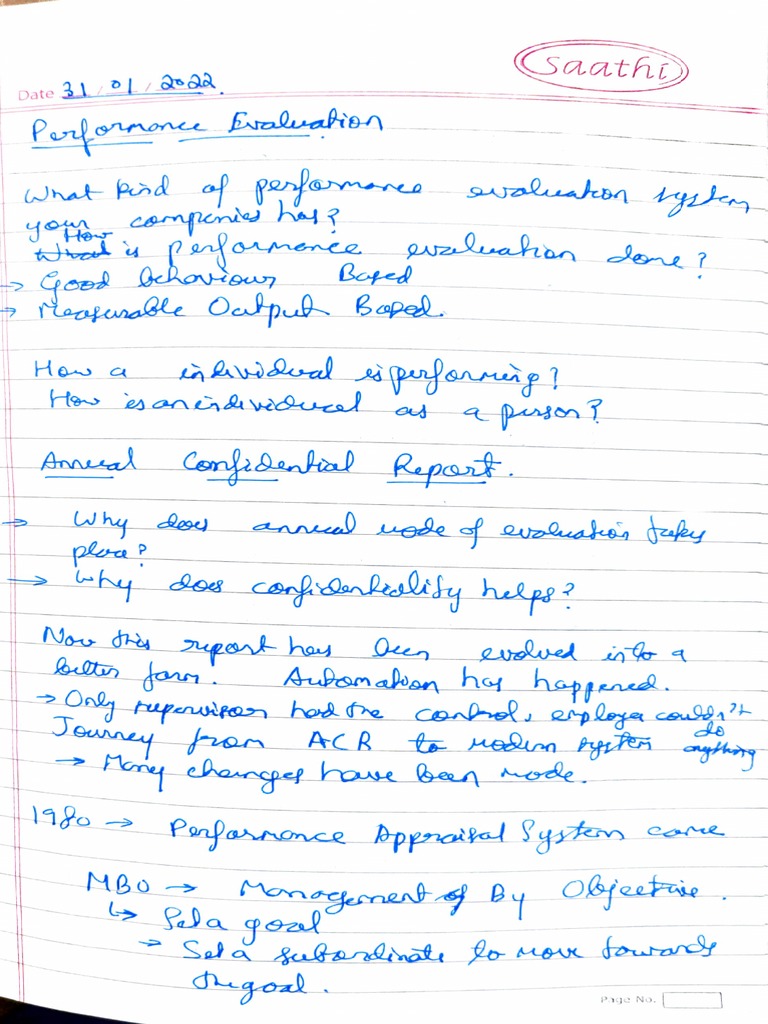 Saathi
Date 31/01/2022.
Performance Evaluation
What kind of performance evaluation system
your companies has?
How is performance evaluation done?
→ Good behaviour Based
→ Measurable Output Based.
How a individual is performing?
How is an individual as a person?
Annual Confidential Report.
→ Why does annual mode of evaluation takes
place?
→ Why does confidentiality helps?
Now this report has been evolved into a
better form. Automation has happened.
→ Only supervisor had the control, employee couldn't do anything
Journey from ACR to modern system
→ Many changes have been made.
1980 → Performance Appraisal System came
MBO → Management By Objective.
↳ Set a goal
→ Set a subordinate to move towards
the goal.
Page No.